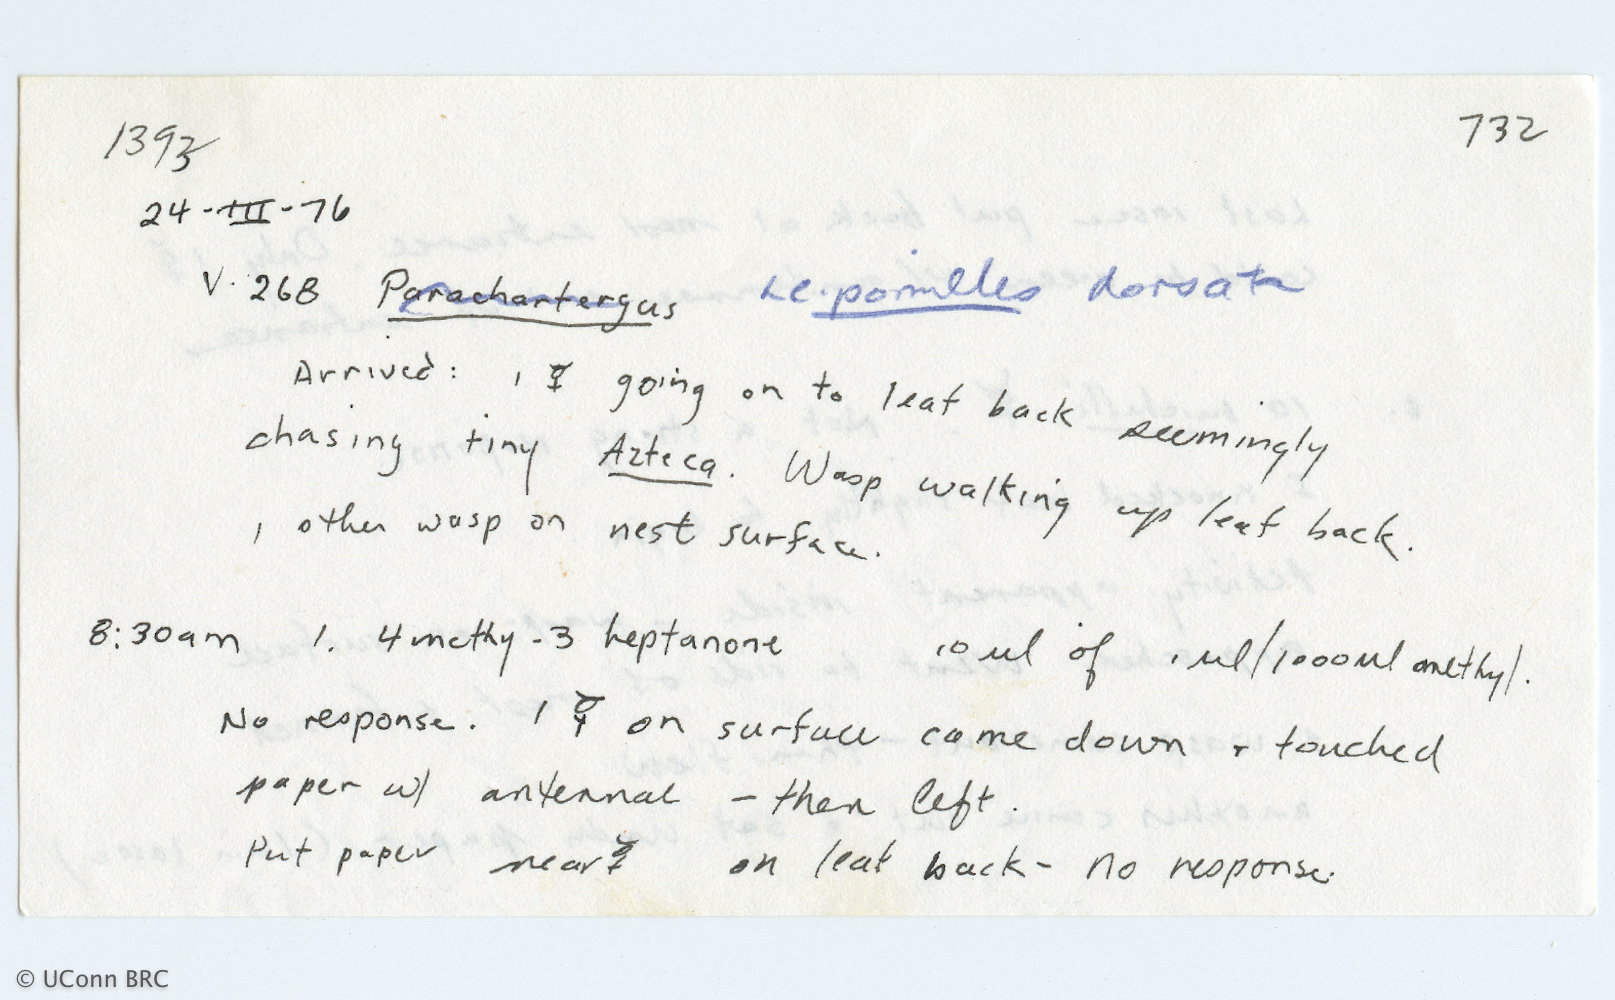 1393
732
24-III-76
V. 268 Parachartergus Leipomeles dorsata
Arrived: 1 ☿ going on to leaf back seemingly
chasing tiny Azteca. Wasp walking up leaf back.
1 other wasp on nest surface.
8:30am 1. 4methy-3 heptanone 10 ul of 1ul/1000ul methyl.
No response. 1 ☿ on surface came down + touched
paper w/ antennae - then left.
Put paper near ☿ on leaf back - no response.
© UConn BRC